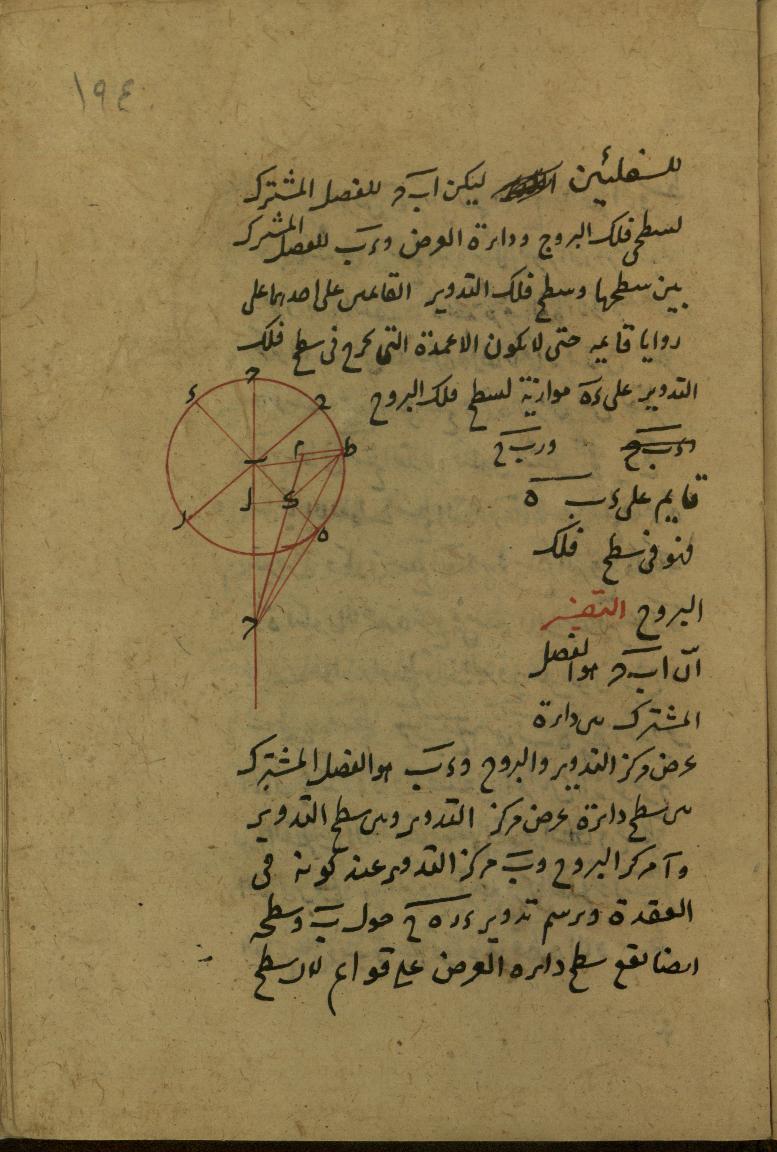 ١٩٤
للسفليين ليكن ا ب ح للفصل المشترك
لسطحى فلك البروج ودائرة العرض و ء ب للفصل المشترك
بين سطحها وسطح فلك التدوير القائمين على احدهما على
زوايا قايمه حتى لا يكون الاعمدة التى تخرج فى سطح فلك
التدوير على ء ه موازية لسطح فلك البروج
و ر ب ح
قايم على ء ب ه
فهو فى سطح فلك
البروج التفسير
ان ا ب ح هو الفصل
المشترك من دائرة
عرض مركز التدوير والبروج و ء ب هو الفصل المشترك
من سطح دائرة عرض مركز التدوير ومن سطح التدوير
و ا مركز البروج و ب مركز التدوير عند كونه فى
العقدة ونرسم تدوير ء ر ه ح حول ب وسطحه
ايضا يقع سطح دايره العرض على قوايم لان سطح
ح
ء
ح
ط
م
ب
ل
ك
ر
ه